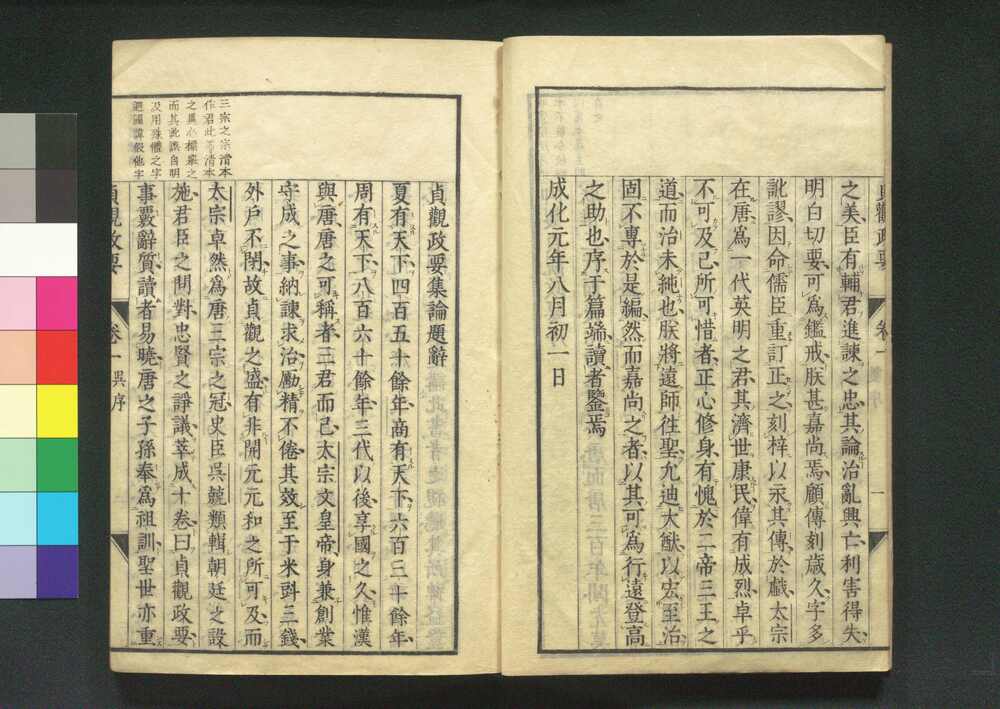 之美臣有輔君進諫之忠其論治亂興亡利害得失
明白切要可爲鑑戒朕甚嘉尚焉顧傳刻歲久字多
訛謬因命儒臣重訂正之刻梓以永其傳於戲太宗
在唐爲一代英明之君其濟世康民偉有成烈卓乎
不可及已所可惜者正心修身有愧於二帝三王之
道而治未純也朕將遠師往聖允迪大猷以宏至治
固不專於是編然而嘉尚之者以其可爲行遠登高
之助也序于篇端讀者鑒焉
成化元年八月初一日
貞觀政要
卷一
序
一
貞觀政要集論題辭
夏有天下四百五十餘年商有天下六百三十餘年
周有天下八百六十餘年三代以後享國之久惟漢
與唐唐之可稱者三君而已太宗文皇帝身兼創業
守成之事納諫求治勵精不倦其效至于米㪷三錢
外戶不閉故貞觀之盛有非開元元和之所可及而
太宗卓然爲唐三宗之冠史臣吳兢類輯朝廷之設
施君臣之問對忠賢之諍議萃成十卷曰貞觀政要
事覈辭質讀者易曉唐之子孫奉爲祖訓聖世亦重
三宗之宗清本
作君此等清本
而其訛誤自明
及用殊體之字
避國諱假他字
貞觀政要
卷一
吳序